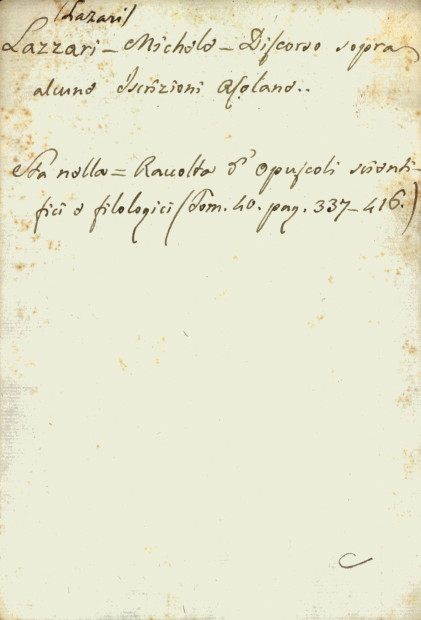 (Lazari)
Lazzari - Michele - Discorso sopra
alcune Iscrizioni Asolane..
Sta nella = Racolta d' Opuscoli scienti-
fici e filologici (Tom. 40. pag. 337-416.)
C